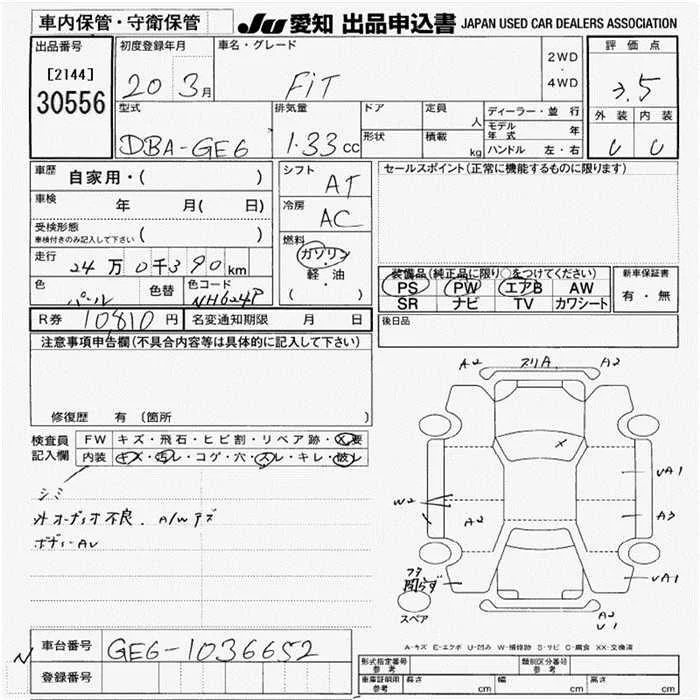 車内保管・守衛保管
JU 愛知 出品申込書 JAPAN USED CAR DEALERS ASSOCIATION
出品番号
[2144]
30556
初度登録年月
20 3月
車名・グレード
FiT
2WD
・
4WD
評価点
3.5
外装 内装
U U
型式
DBA-GE6
排気量
1.33cc
ドア
形状
定員
人
積載
kg
ディーラー・並行
モデル年式 年
ハンドル 左・右
車歴 自家用・( )
車検 年 月( 日)
受検形態
車検付きのみ記入して下さい ( )
走行 24万0千390km
色 パール
色替
色コード
NH624P
シフト
AT
冷房
AC
燃料
ガソリン
・
軽・油
( )
セールスポイント(正常に機能するものに限ります)
装備品(純正品に限り○をつけてください)
PS PW エアB AW
SR ナビ TV カワシート
新車保証書
有・無
R券 10810円
名変通知期限 月 日
後日品
注意事項申告欄(不具合内容等は具体的に記入して下さい)
修復歴 有 (箇所 )
検査員
記入欄
FW キズ・飛石・ヒビ割・リペア跡・X要
内装 キズ・汚レ・コゲ・穴・スレ・キレ・破レ
シミ
外オーディオ不良. A/Wキズ
ボディーAU
A2 スリA. A2
X
UA1
W2
A2
A3
フタ
開らず
UA1
スペア
A2
U1
A-キズ E-エクボ U-凹み W-補修跡 S-サビ C-腐食 XX-交換済
車台番号 GE6-1036652
N
登録番号
型式指定番号
参考
類別区分番号
参考
車庫証明用
参考
長さ cm 幅 cm 高さ cm